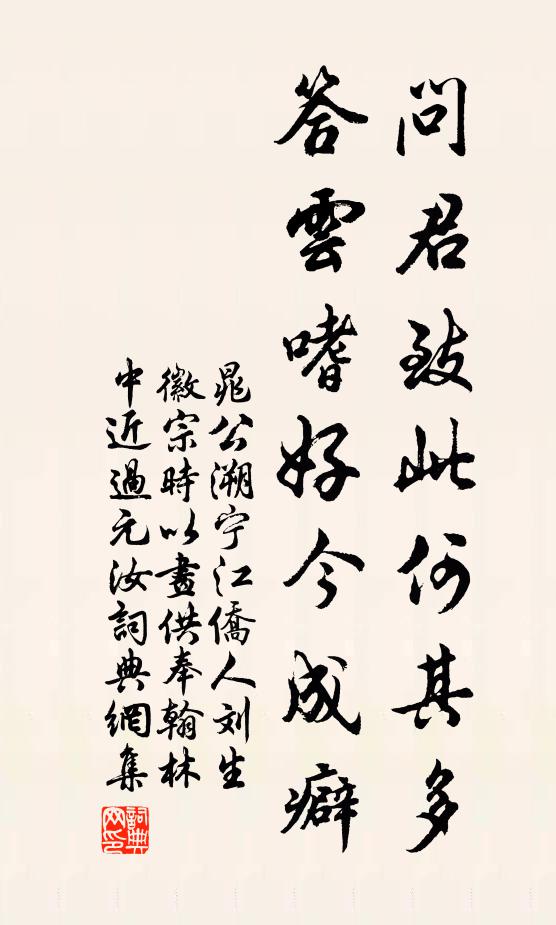 問君致此何其多
答雲嗜好今成癖
晁公溯宁江僑人刘生
徽宗時以畫供奉翰林
中近過元汝詞典網集
詞典网印